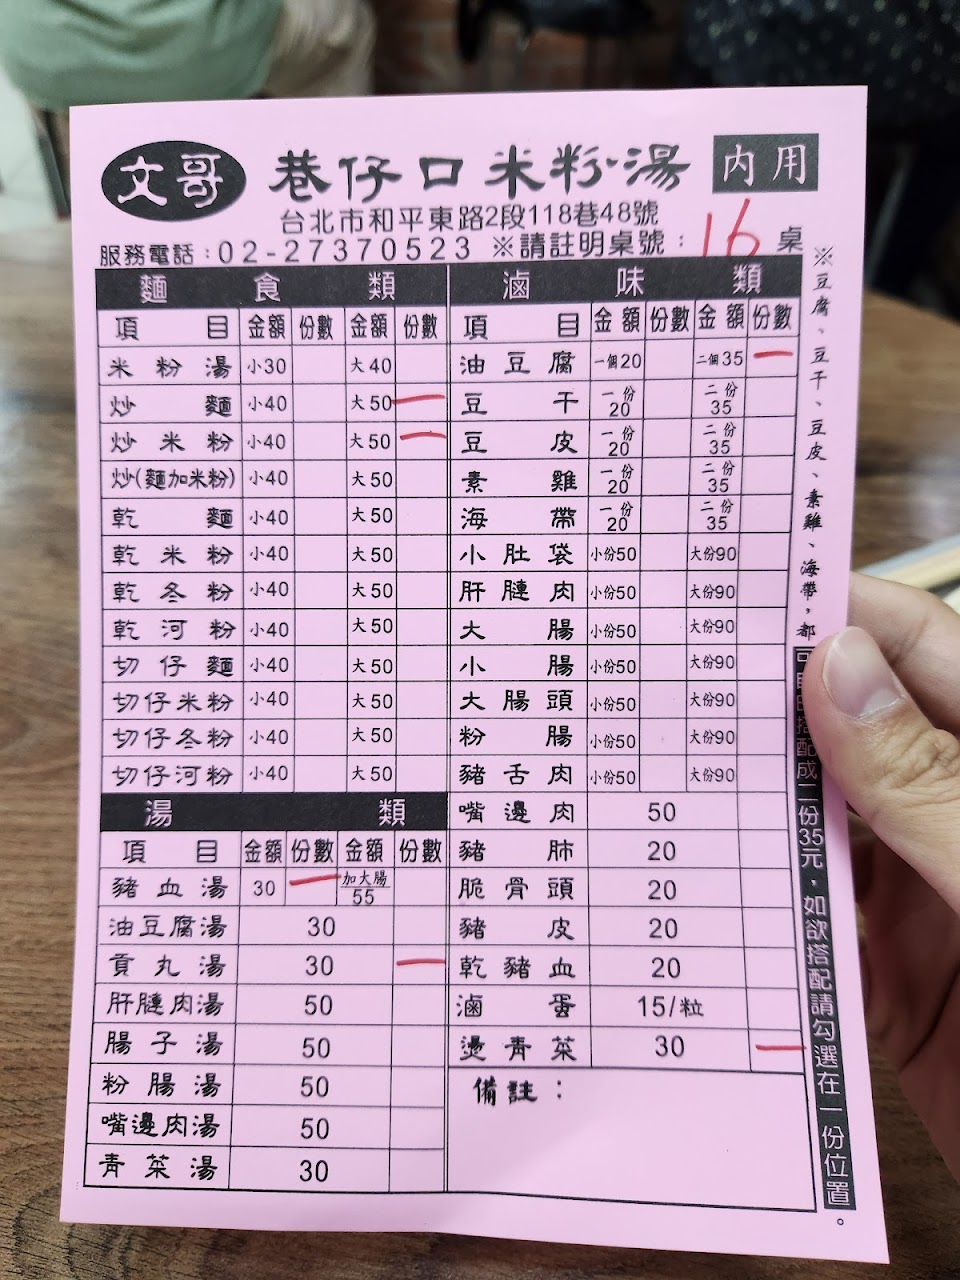 文哥 巷仔口米粉湯 內用
台北市和平東路2段118巷48號
服務電話:02-27370523 ※請註明桌號:16桌
麵食類
項目 金額 份數 金額 份數
米粉湯 小30 大40
炒麵 小40 大50 一
炒米粉 小40 大50 一
炒(麵加米粉) 小40 大50
乾麵 小40 大50
乾米粉 小40 大50
乾冬粉 小40 大50
乾河粉 小40 大50
切仔麵 小40 大50
切仔米粉 小40 大50
切仔冬粉 小40 大50
切仔河粉 小40 大50
湯類
項目 金額 份數 金額 份數
豬血湯 30 一 加大腸55
油豆腐湯 30
貢丸湯 30 一
肝膧肉湯 50
腸子湯 50
粉腸湯 50
嘴邊肉湯 50
青菜湯 30
滷味類
項目 金額 份數 金額 份數
油豆腐 一個20 二個35 一
豆干 一份20 二份35
豆皮 一份20 二份35
素雞 一份20 二份35
海帶 一份20 二份35
小肚袋 小份50 大份90
肝膧肉 小份50 大份90
大腸 小份50 大份90
小腸 小份50 大份90
大腸頭 小份50 大份90
粉腸 小份50 大份90
豬舌肉 小份50 大份90
嘴邊肉 50
豬肺 20
脆骨頭 20
豬皮 20
乾豬血 20
滷蛋 15/粒
燙青菜 30 一
備註:
※豆腐、豆干、豆皮、素雞、海帶,都可自由搭配成二份35元,如欲搭配請勾選在一份位置。